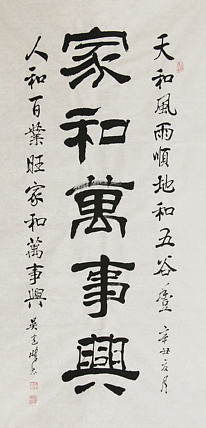 家和萬事興
天和風雨順地和五谷豐辛丑
人和百業旺家和萬事興